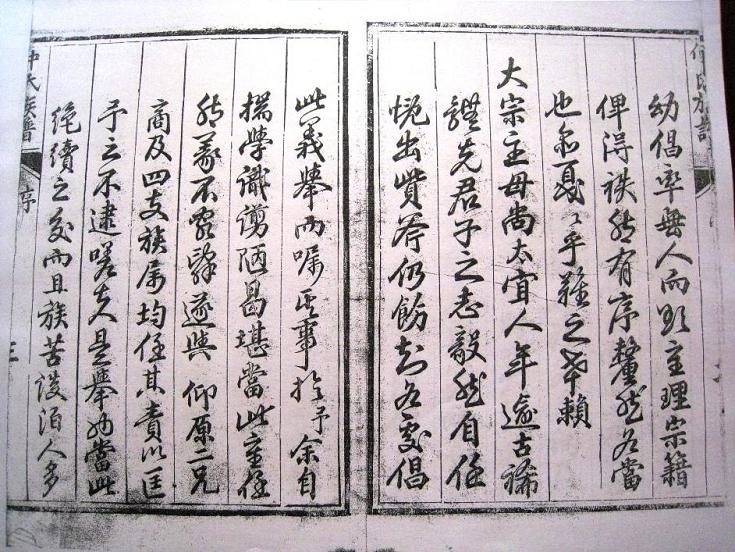 幼倡率無人而欲主理宗籍
俾得秩然有序釐然各當
也亦戛戛乎難之幸賴
大宗主母尚太宜人年逾古稀
體先君子之志毅然自任
悦出貲斧仍飭知各處倡
此義舉而囑其事於予余自
揣學識謭陋曷堪當此重任
然義不容辭遂與仰原二兄
商及四支族属均任其責以匡
予之不逮嗟夫是舉也當此
絶續之交而且族苦殷洎人多
仲氏族譜
序
三